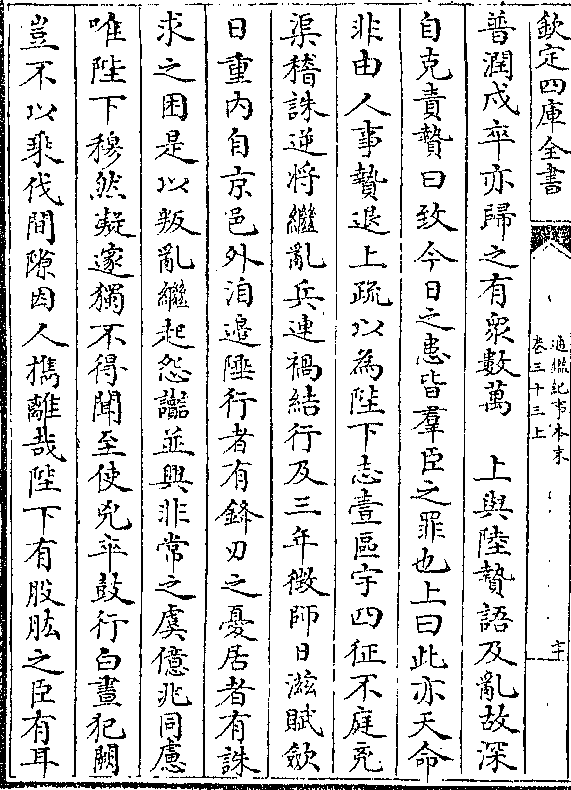 欽定四庫全書
通鑑紀事本末
卷三十三上
普潤戍卒亦歸之有衆數萬　上與陸贄語及亂故深
自克責贄曰致今日之患皆羣臣之罪也上曰此亦天命
非由人事贄退上疏以為陛下志壹區宇四征不庭兇
渠稽誅逆將繼亂兵連禍結行及三年徴師日滋賦斂
日重内自京邑外洎邉陲行者有鋒刃之憂居者有誅
求之困是以叛亂繼起怨讟並興非常之虞億兆同慮
唯陛下穆然凝邃獨不得聞至使兇卒鼓行白晝犯闕
豈不以乗伐間隙因人攜離哉陛下有股肱之臣有耳